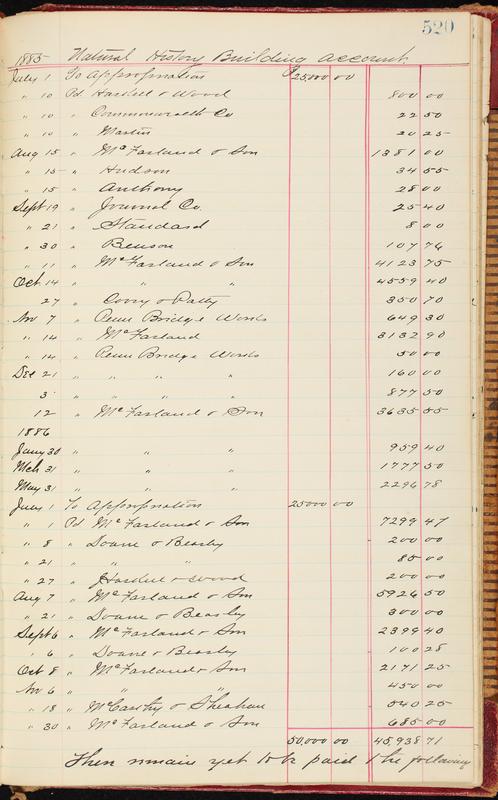 520
1885 Natural History Building account
July 1 To Appropriation $25,000 00
" 10 Pd Haskell & Wood 800 00
" 10 " Commonwealth Co 22 50
" 10 " Martin 20 25
Aug 15 " McFarland & Son 1381 00
" 15 " Hudson 34 55
" 15 " Anthony 28 00
Sept 19 " Journal Co. 25 40
" 21 " Standard 8 00
" 30 " Benson 107 76
" 11 " McFarland & Son 4123 75
Oct 14 " " " 4559 40
27 " Corry & Patty 350 70
Nov 7 " Penn Bridge Works 649 30
" 14 " McFarland 3132 90
" 14 " Penn Bridge Works 50 00
Dec 21 " " " " 160 00
3 " " " " 877 50
12 " McFarland & Son 3635 55
1886
Jany 30 " " " 959 40
Mch 31 " " " 1777 50
May 31 " " " 2296 78
July 1 To Appropriation 25000 00
" 1 Pd McFarland & Son 7299 47
" 8 " Doane & Beasly 200 00
" 21 " " " 85 00
" 27 " Haskell & Wood 200 00
Aug 7 " McFarland & Son 5926 50
" 21 " Doane & Beasly 300 00
Sept 6 " McFarland & Son 2399 40
" 6 " Doane & Beasly 100 28
Oct 8 " McFarland & Son 2171 25
Nov 6 " " " 450 00
" 18 " McCarthy & Sheahan 540 25
" 30 " McFarland & Son 685 00
50,000 00 45,938 71
There remains yet to be paid the following